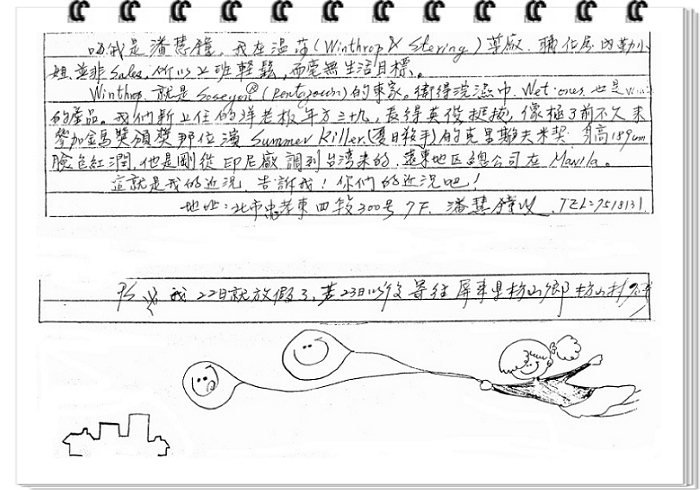 嗨我是潘慧鐘，我在溫莎(Winthrop & Stering)藥廠．職位居內勤小
姐並非Sales，所以上班輕鬆，而毫無生活目標、。
Winthrop．就是 (Pentazocin)的東家。衛得潔濕巾．Wet-ones．也是
的產品。我們新上任的洋老板年方三九，長得英俊挺拔，像極了前不久來
參加金馬獎頒獎那位演 Summer Killer.(夏日殺手)的克里斯夫米契．身高189㎝
臉色紅潤．他是剛從印尼廠調到台湾來的．遠東地区總公司在Manila。
這就是我的近況 告訴我！你們的近況吧！
地址：北市忠孝東四段300号 7F．潘慧鐘 ．TEL:7518131.
P/S 我22日就放假了，若23日以後寄往屏東县枋山鄉枋山村